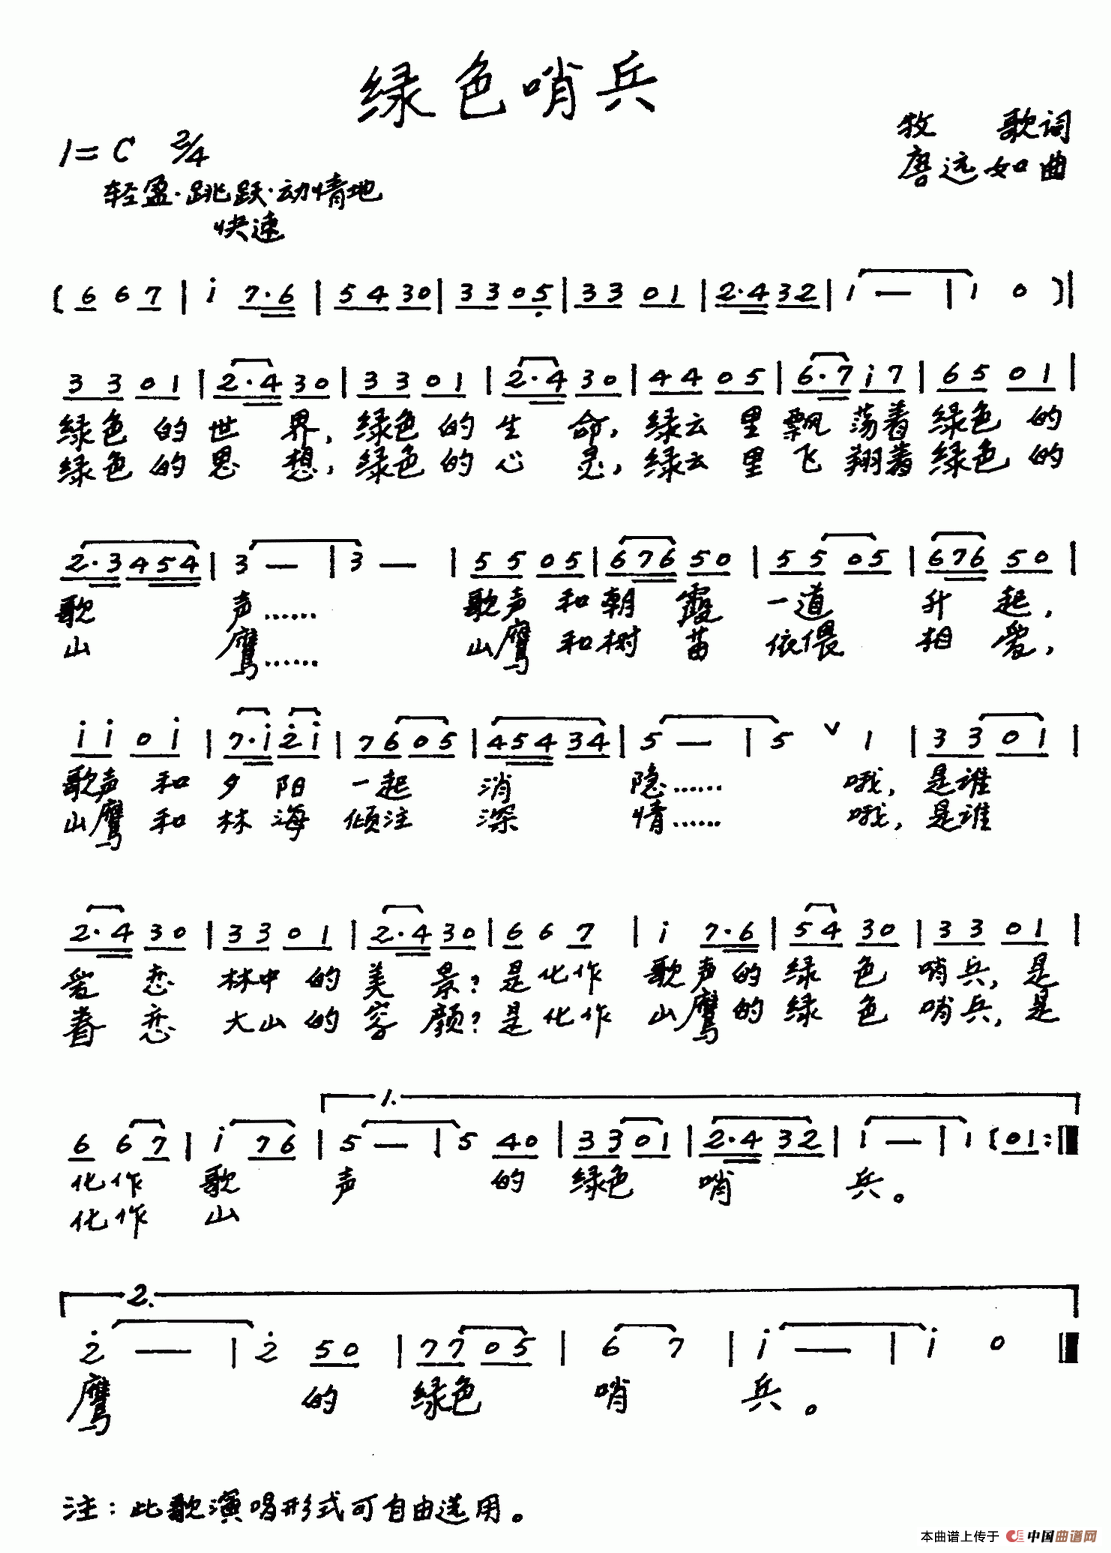 绿色哨兵
1=C 2/4
牧 歌词
唐远如曲
轻盈·跳跃·动情地
快速
( 6 6 7 | i 7·6 | 5 4 3 0 | 3 3 0 5 | 3 3 0 1 | 2·4 3 2 | 1 — | 1 0 ) |
3 3 0 1 | 2·4 3 0 | 3 3 0 1 | 2·4 3 0 | 4 4 0 5 | 6·7 i 7 | 6 5 0 1 |
绿色的世界,绿色的生命,绿云里飘荡着绿色的
绿色的思想,绿色的心灵,绿云里飞翔着绿色的
2·3 4 5 4 | 3 — | 3 — | 5 5 0 5 | 6 7 6 5 0 | 5 5 0 5 | 6 7 6 5 0 |
歌声……歌声和朝霞一道升起,
山鹰……山鹰和树苗依偎相爱,
i i 0 i | 7·i 2 i | 7 6 0 5 | 4 5 4 3 4 | 5 — | 5 ∨ 1 | 3 3 0 1 |
歌声和夕阳一起消隐……哦,是谁
山鹰和林海倾注深情……哦,是谁
2·4 3 0 | 3 3 0 1 | 2·4 3 0 | 6 6 7 | i 7·6 | 5 4 3 0 | 3 3 0 1 |
爱恋林中的美景?是化作歌声的绿色哨兵,是
眷恋大山的容颜?是化作山鹰的绿色哨兵,是
1.
6 6 7 | i 7 6 | 5 — | 5 4 0 | 3 3 0 1 | 2·4 3 2 | 1 — | 1 ( 0 1 :|
化作歌声的绿色哨兵。
化作山
2.
2 — | 2 5 0 | 7 7 0 5 | 6 7 | i — | i 0 |
鹰的绿色哨兵。
注:此歌演唱形式可自由选用。
本曲谱上传于 中国曲谱网